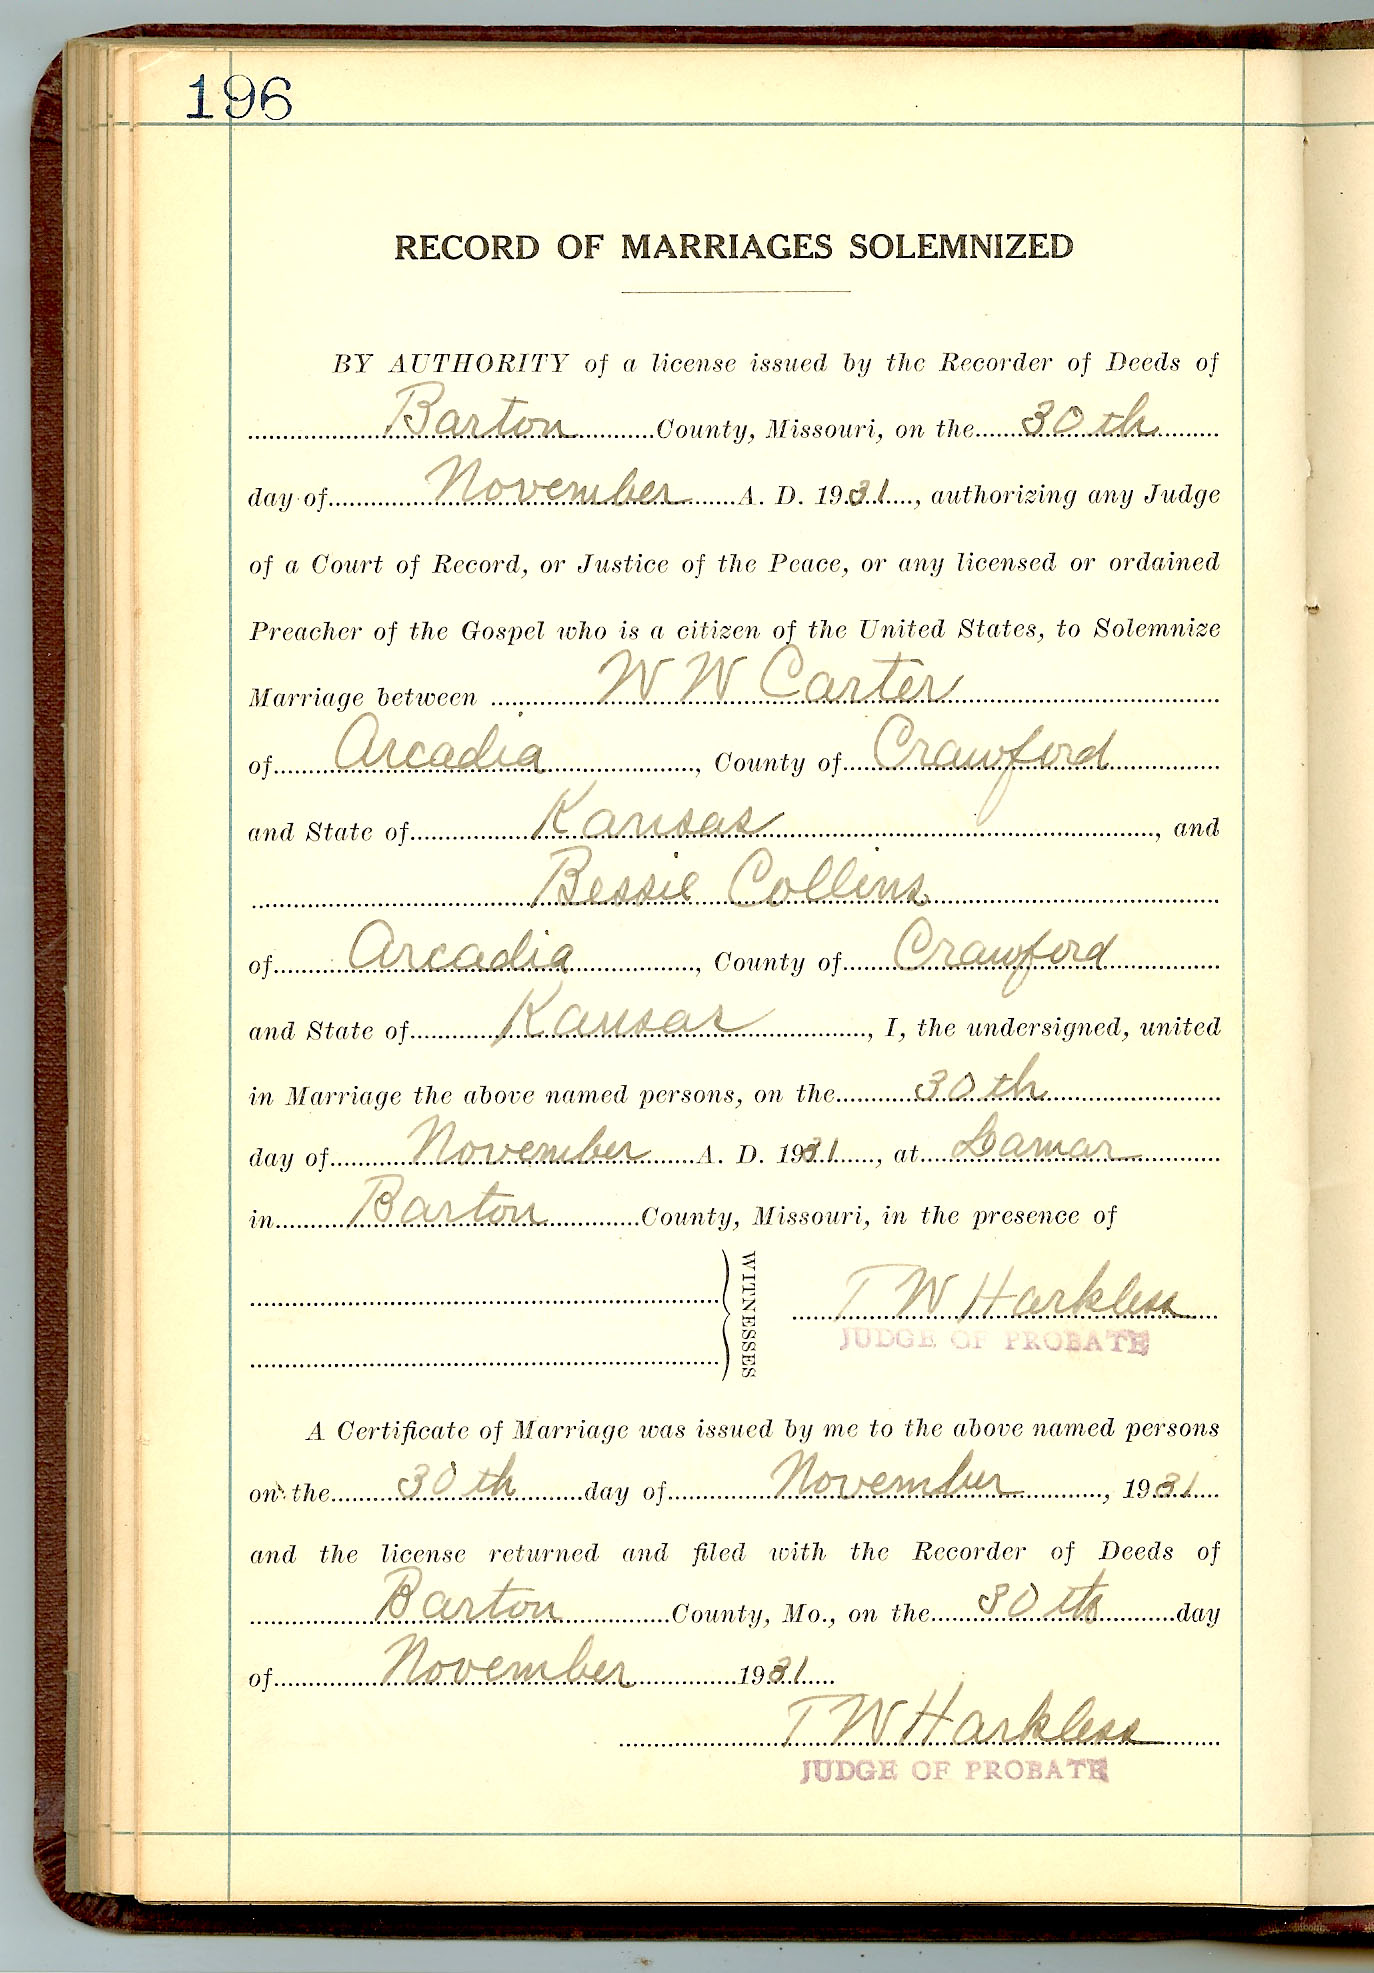 196
RECORD OF MARRIAGES SOLEMNIZED
BY AUTHORITY of a license issued by the Recorder of Deeds of
Barton County, Missouri, on the 30th
day of November A. D. 1931, authorizing any Judge
of a Court of Record, or Justice of the Peace, or any licensed or ordained
Preacher of the Gospel who is a citizen of the United States, to Solemnize
Marriage between W W Carter
of Arcadia, County of Crawford
and State of Kansas, and
Bessie Collins
of Arcadia, County of Crawford
and State of Kansas, I, the undersigned, united
in Marriage the above named persons, on the 30th
day of November A. D. 1931, at Lamar
in Barton County, Missouri, in the presence of
WITNESSES
T W Harkless
JUDGE OF PROBATE
A Certificate of Marriage was issued by me to the above named persons
on the 30th day of November, 1931
and the license returned and filed with the Recorder of Deeds of
Barton County, Mo., on the 30th day
of November 1931
T W Harkless
JUDGE OF PROBATE